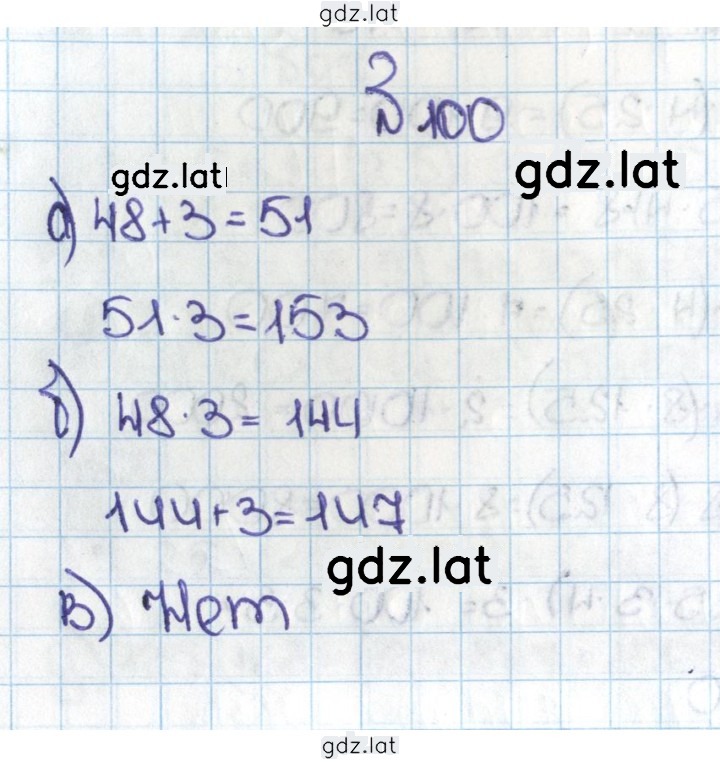 gdz.lat
№ 100
gdz.lat
gdz.lat
а) 48+3=51
51·3=153
б) 48·3= 144
144+3=147
gdz.lat
в) Нет
gdz.lat